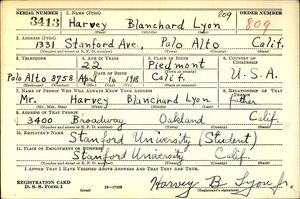 SERIAL NUMBER 1. NAME 809 ORDER NUMBER
3413 Harvey Blanchard Lyon 809
2. ADDRESS
1331 Stanford Ave., Palo Alto Calif.
3. TELEPHONE 4. AGE IN YEARS 5. PLACE OF BIRTH 6. COUNTRY OF CITIZENSHIP
22 Piedmont
DATE OF BIRTH
Palo Alto 8758 April 16 1918 Calif. U.S.A.
7. NAME OF PERSON WHO WILL ALWAYS KNOW YOUR ADDRESS 8. RELATIONSHIP OF THAT PERSON
Mr. Harvey Blanchard Lyon father
9. ADDRESS OF THAT PERSON
3400 Broadway Oakland Calif.
10. EMPLOYER'S NAME
Stanford University (Student)
11. PLACE OF EMPLOYMENT OR BUSINESS
Stanford University Calif.
I AFFIRM THAT I HAVE VERIFIED ABOVE ANSWERS AND THAT THEY ARE TRUE.
REGISTRATION CARD
D. S. S. Form 1 Harvey B Lyon Jr.
(Registrant's signature)